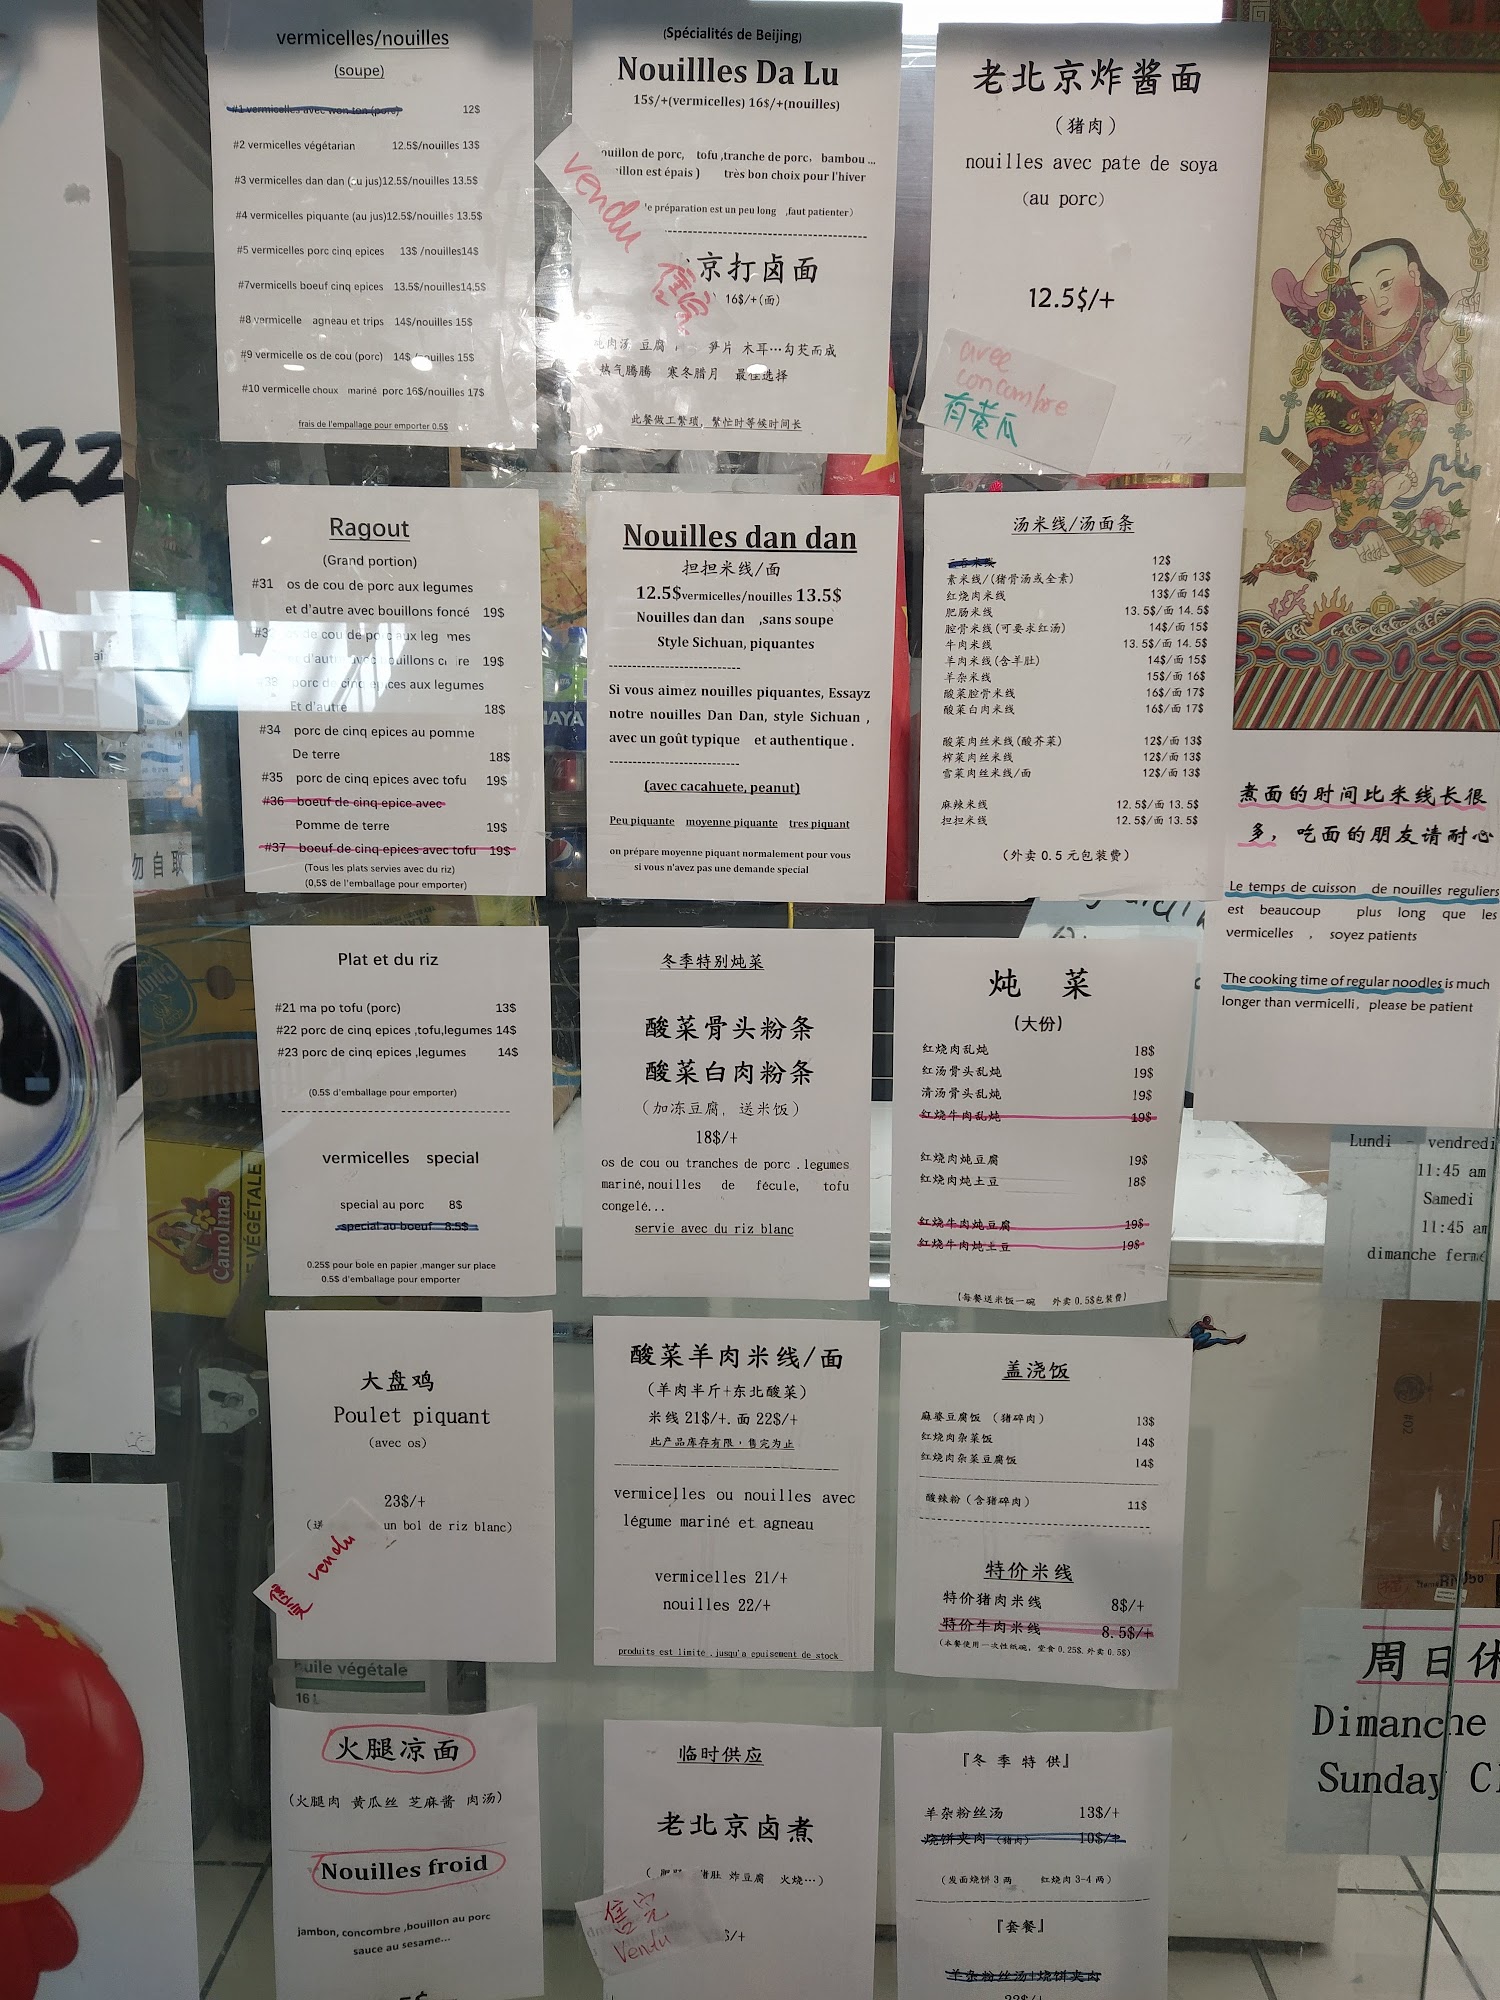 vermicelles/nouilles
(soupe)
#1 vermicelles avec won ton (porc) 12$
#2 vermicelles végétarian 12.5$/nouilles 13$
#3 vermicelles dan dan (au jus)12.5$/nouilles 13.5$
#4 vermicelles piquante (au jus)12.5$/nouilles 13.5$
#5 vermicelles porc cinq epices 13$ /nouilles14$
#7vermicells boeuf cinq epices 13.5$/nouilles14.5$
#8 vermicelle agneau et trips 14$/nouilles 15$
#9 vermicelle os de cou (porc) 14$ /nouilles 15$
#10 vermicelle choux mariné porc 16$/nouilles 17$
frais de l'empallage pour emporter 0.5$
(Spécialités de Beijing)
Nouillles Da Lu
15$/+(vermicelles) 16$/+(nouilles)
ouillon de porc, tofu ,tranche de porc, bambou ...
illon est épais ) très bon choix pour l'hiver
e préparation est un peu long ,faut patienter)
vendu
售完
京打卤面
16$/+(面)
炖肉汤 豆腐 笋片 木耳…勾芡而成
热气腾腾 寒冬腊月 最佳选择
此餐做工繁琐, 繁忙时等候时间长
老北京炸酱面
(猪肉)
nouilles avec pate de soya
(au porc)
12.5$/+
avec
concombre
有黄瓜
022
Ragout
(Grand portion)
#31 os de cou de porc aux legumes
et d'autre avec bouillons foncé 19$
#32 os de cou de porc aux leg mes
et d'autre avec bouillons c re 19$
#33 porc de cinq epices aux legumes
Et d'autre 18$
#34 porc de cinq epices au pomme
De terre 18$
#35 porc de cinq epices avec tofu 19$
#36 boeuf de cinq epice avec
Pomme de terre 19$
#37 boeuf de cinq epices avec tofu 19$
(Tous les plats servies avec du riz)
(0,5$ de l'emballage pour emporter)
Nouilles dan dan
担担米线/面
12.5$vermicelles/nouilles 13.5$
Nouilles dan dan ,sans soupe
Style Sichuan, piquantes
Si vous aimez nouilles piquantes, Essayz
notre nouilles Dan Dan, style Sichuan ,
avec un goût typique et authentique .
(avec cacahuete, peanut)
Peu piquante moyenne piquante tres piquant
on prépare moyenne piquant normalement pour vous
si vous n'avez pas une demande special
汤米线/汤面条
12$
素米线/(猪骨汤或全素) 12$/面 13$
红烧肉米线 13$/面 14$
肥肠米线 13.5$/面 14.5$
腔骨米线(可要求红汤) 14$/面 15$
牛肉米线 13.5$/面 14.5$
羊肉米线(含羊肚) 14$/面 15$
羊杂米线 15$/面 16$
酸菜腔骨米线 16$/面 17$
酸菜白肉米线 16$/面 17$
酸菜肉丝米线(酸芥菜) 12$/面 13$
榨菜肉丝米线 12$/面 13$
雪菜肉丝米线/面 12$/面 13$
麻辣米线 12.5$/面 13.5$
担担米线 12.5$/面 13.5$
(外卖 0.5 元包装费)
煮面的时间比米线长很
多, 吃面的朋友请耐心
Le temps de cuisson de nouilles reguliers
est beaucoup plus long que les
vermicelles , soyez patients
The cooking time of regular noodles is much
longer than vermicelli, please be patient
勿自取
Plat et du riz
#21 ma po tofu (porc) 13$
#22 porc de cinq epices ,tofu,legumes 14$
#23 porc de cinq epices ,legumes 14$
(0.5$ d'emballage pour emporter)
vermicelles special
special au porc 8$
special au boeuf 8.5$
0.25$ pour bole en papier ,manger sur place
0.5$ d'emballage pour emporter
冬季特别炖菜
酸菜骨头粉条
酸菜白肉粉条
(加冻豆腐, 送米饭)
18$/+
os de cou ou tranches de porc . legumes
mariné,nouilles de fécule, tofu
congelé...
servie avec du riz blanc
炖 菜
(大份)
红烧肉乱炖 18$
红汤骨头乱炖 19$
清汤骨头乱炖 19$
红烧牛肉乱炖 19$
红烧肉炖豆腐 19$
红烧肉炖土豆 18$
红烧牛肉炖豆腐 19$
红烧牛肉炖土豆 19$
(每餐送米饭一碗 外卖 0.5$包装费)
Lundi - vendredi
11:45 am
Samedi
11:45 am
dimanche fermé
Canolina
VÉGÉTALE
大盘鸡
Poulet piquant
(avec os)
23$/+
(送 un bol de riz blanc)
售完 vendu
huile végétale
16 L
酸菜羊肉米线/面
(羊肉半斤+东北酸菜)
米线 21$/+. 面 22$/+
此产品库存有限,售完为止
vermicelles ou nouilles avec
légume mariné et agneau
vermicelles 21/+
nouilles 22/+
produits est limite . jusqu'a epuisement de stock
盖浇饭
麻婆豆腐饭 (猪碎肉) 13$
红烧肉杂菜饭 14$
红烧肉杂菜豆腐饭 14$
酸辣粉(含猪碎肉) 11$
特价米线
特价猪肉米线 8$/+
特价牛肉米线 8.5$/+
(本餐使用一次性纸碗, 堂食 0.25$. 外卖 0.5$)
周日休
Dimanche
Sunday Cl
火腿凉面
(火腿肉 黄瓜丝 芝麻酱 肉汤)
Nouilles froid
jambon, concombre ,bouillon au porc
sauce au sesame...
临时供应
老北京卤煮
猪肚 炸豆腐 火烧…)
售完
Vendu
$/+
『冬 季 特 供』
羊杂粉丝汤 13$/+
烧饼夹肉 (猪肉) 10$/+
(发面烧饼 3 两 红烧肉 3-4 两)
『套餐』
羊杂粉丝汤+烧饼夹肉
22$/+